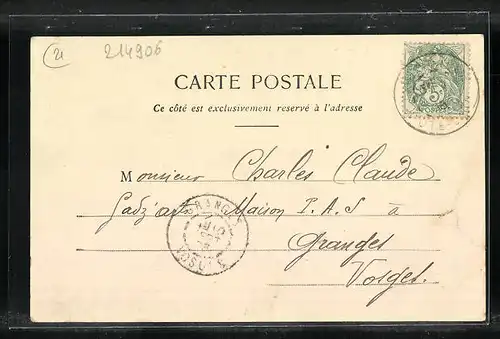 21
214906
CARTE POSTALE
Ce côté est exclusivement reservé à l'adresse
Monsieur Charles Claude
Gadz'arts Maison P.A.S à
Granges
Vosges.
GRANGES
VOSGES